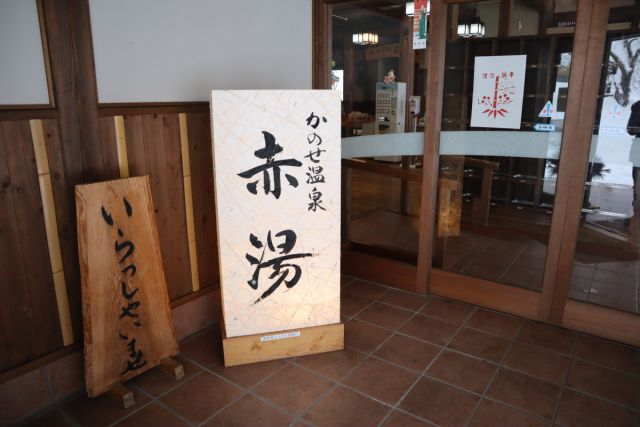 かのせ温泉
赤湯
いらっしゃいませ